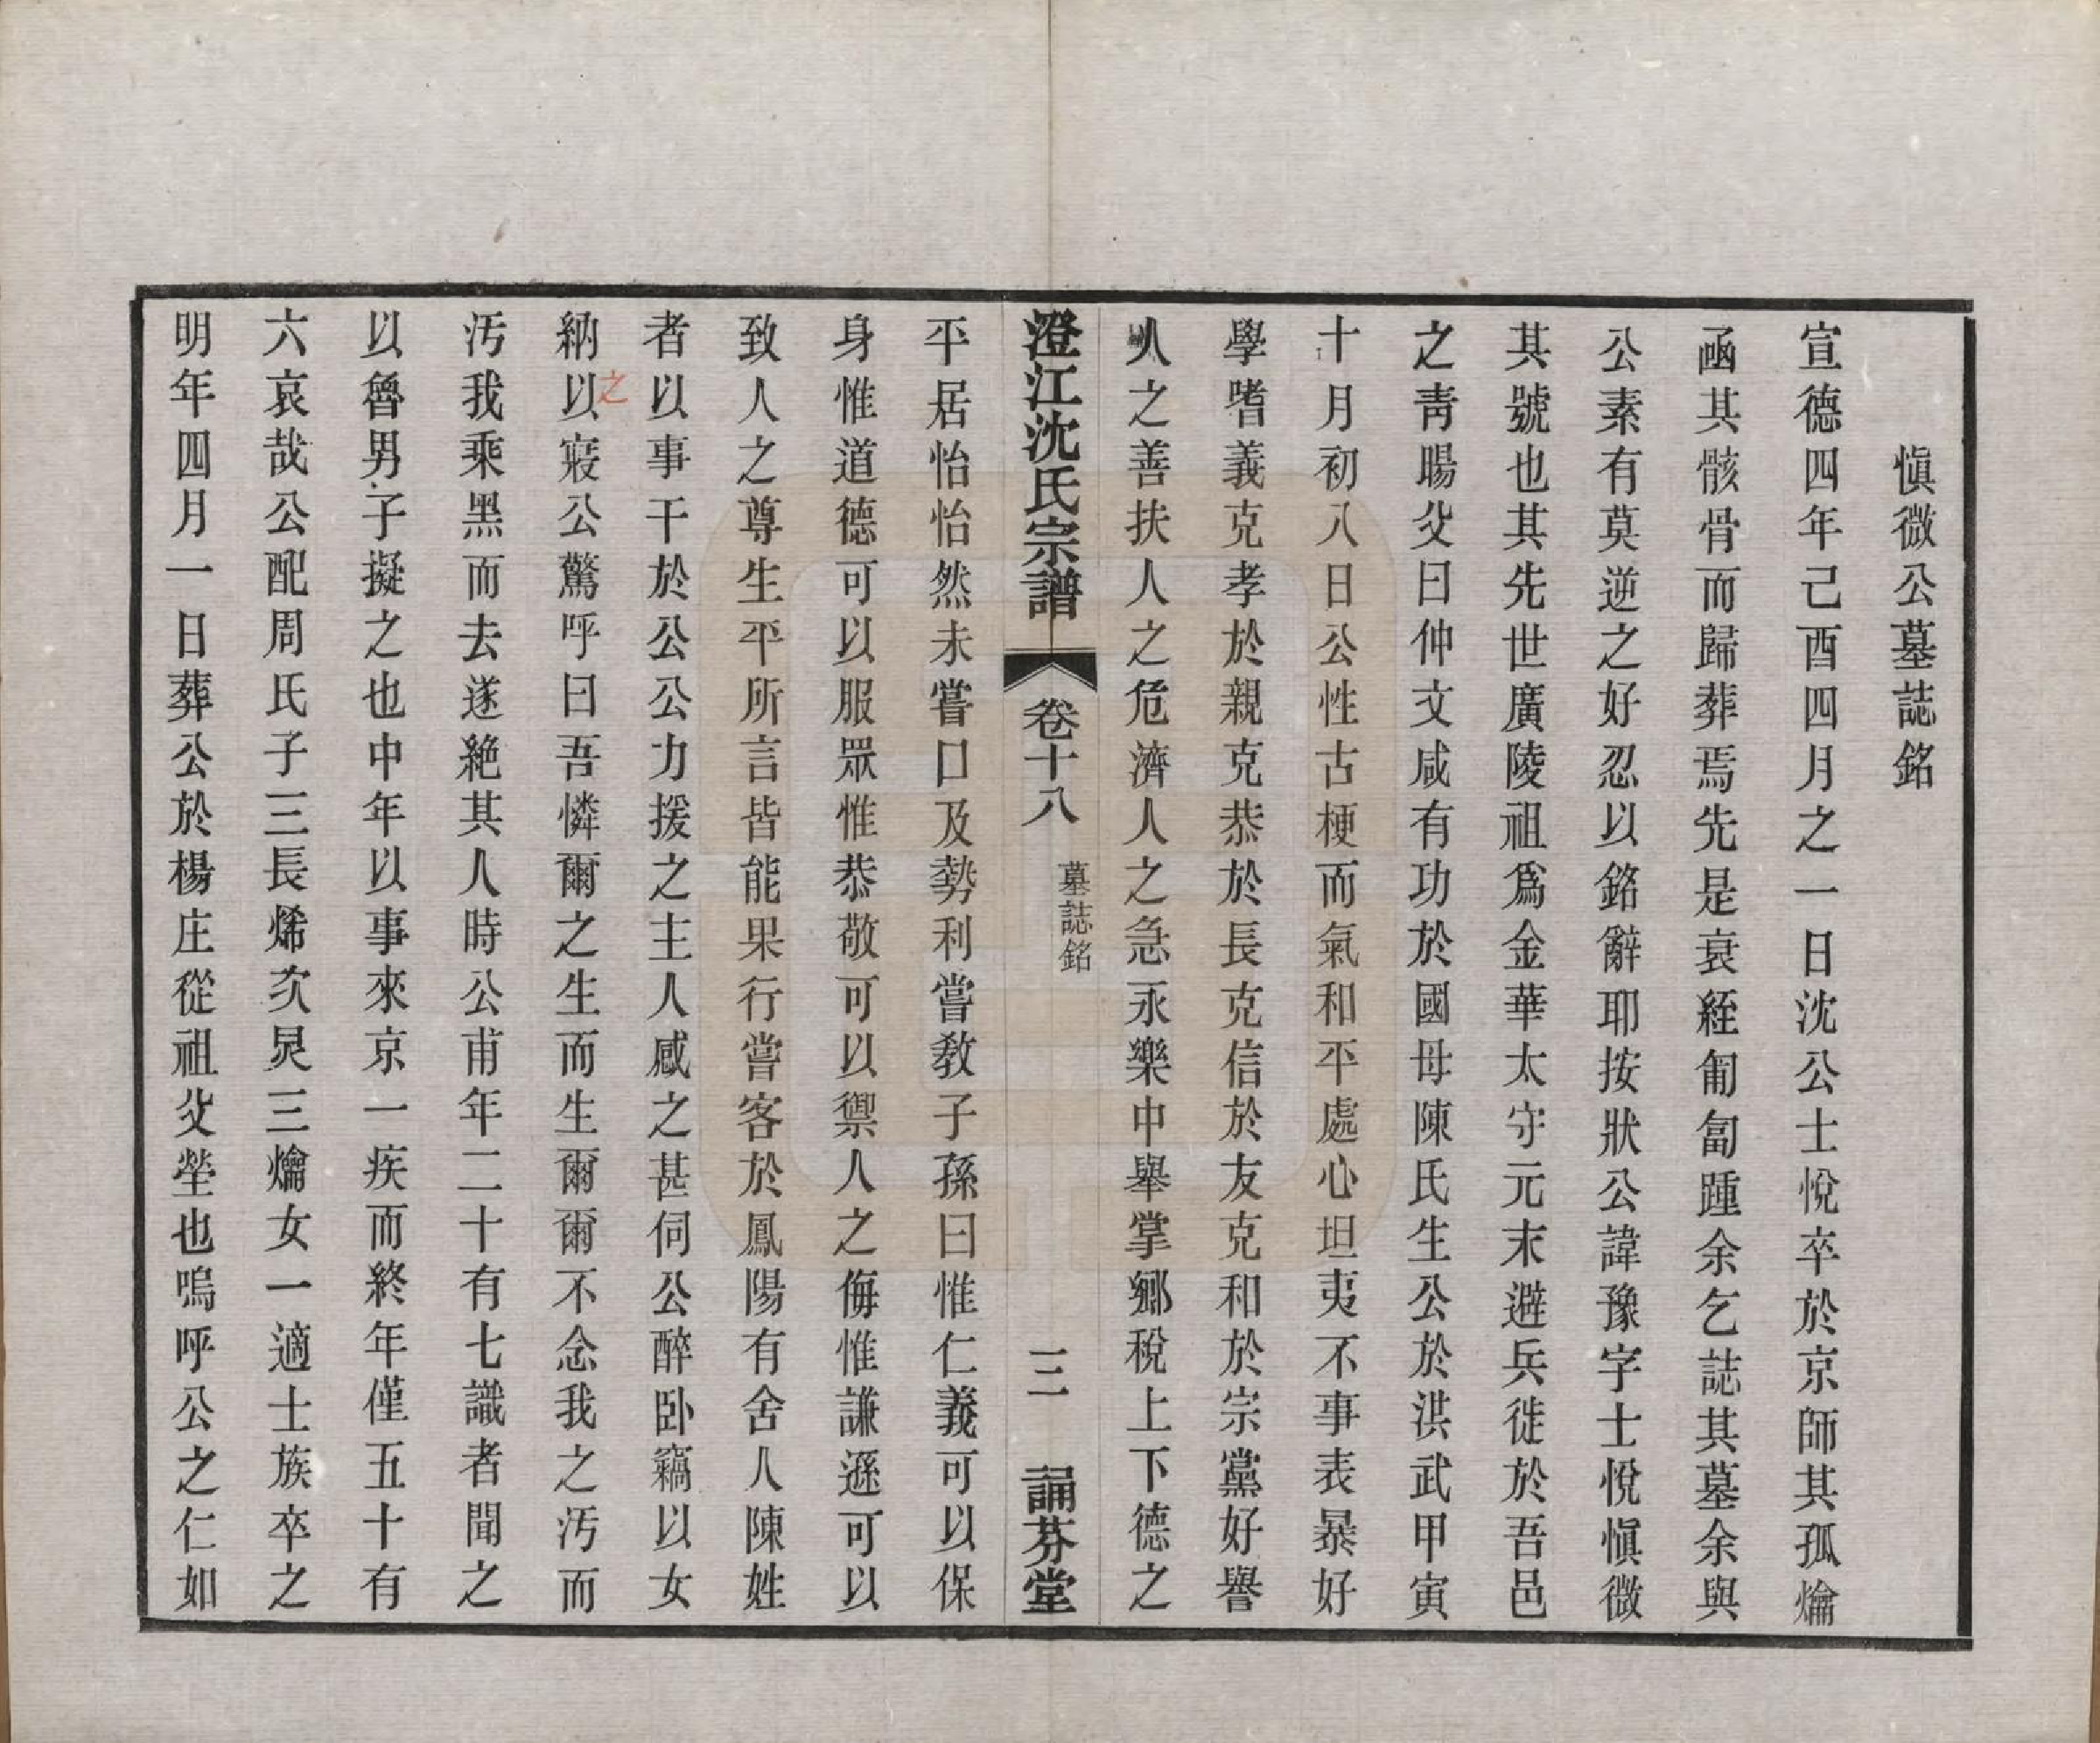 愼微公墓誌銘
宣德四年己酉四月之一日沈公士悅卒於京師其孤爚
函其骸骨而歸葬焉先是衰絰匍匐踵余乞誌其墓余與
公素有莫逆之好忍以銘辭耶按狀公諱豫字士悅愼微
其號也其先世廣陵祖爲金華太守元末避兵徙於吾邑
之靑暘父曰仲文咸有功於國母陳氏生公於洪武甲寅
十月初八日公性古梗而氣和平處心坦夷不事表暴好
學嗜義克孝於親克恭於長克信於友克和於宗黨好譽
人之善扶人之危濟人之急永樂中舉掌鄉稅上下德之
澄江沈氏宗譜
卷十八
墓誌銘
三
誦芬堂
平居怡怡然未嘗口及勢利嘗敎子孫曰惟仁義可以保
身惟道德可以服眾惟恭敬可以禦人之侮惟謙遜可以
致人之尊生平所言皆能果行嘗客於鳳陽有舍人陳姓
者以事干於公公力援之主人感之甚伺公醉卧竊以女
納以寢公驚呼曰吾憐爾之生而生爾爾不念我之汚而
之
汚我乘黑而去遂絶其人時公甫年二十有七識者聞之
以魯男子擬之也中年以事來京一疾而終年僅五十有
六哀哉公配周氏子三長烯次炅三爚女一適士族卒之
明年四月一日葬公於楊庄從祖父塋也嗚呼公之仁如